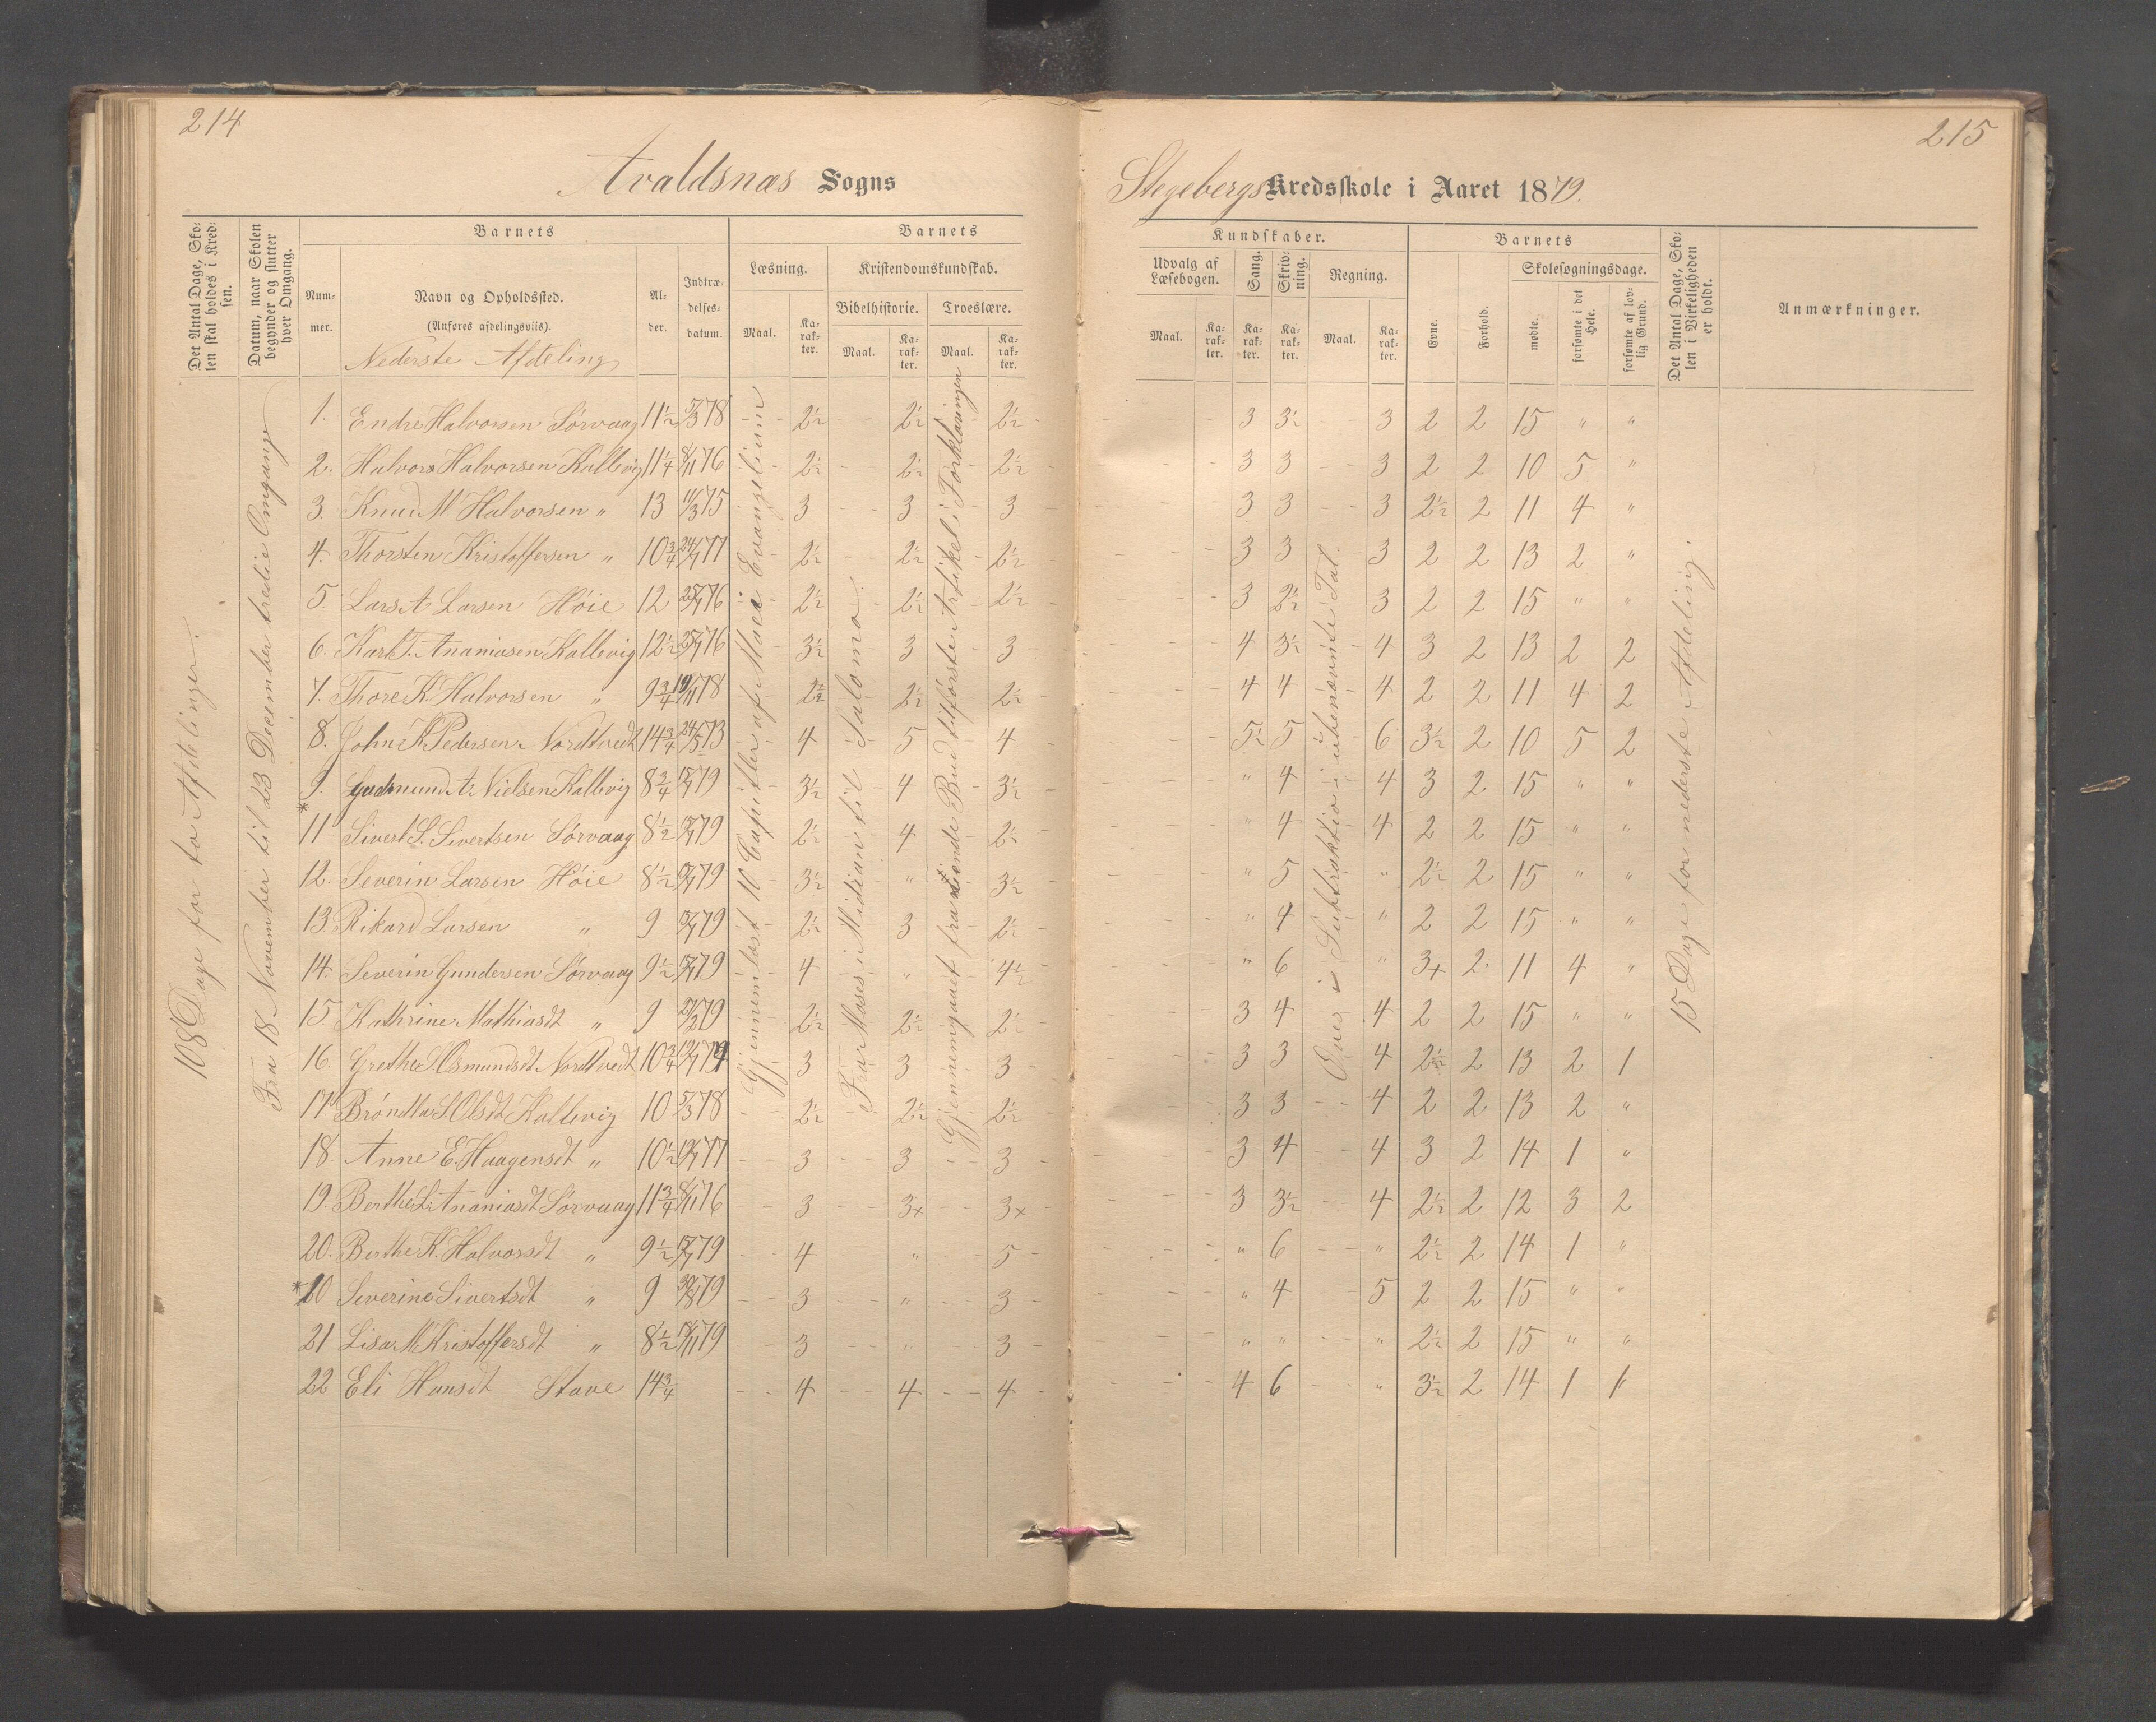 214
Avaldsnæs Sogns
Det Antal Dage, Sko-
len skal holdes i Kred-
sen.
Datum, naar Skolen
begynder og slutter
hver Omgang.
Barnets
Num-
mer.
Navn og Opholdssted.
(Anføres afdelingsvis).
Nederste Afdeling
Al-
der.
Indtræ-
delses-
datum.
Barnets
Læsning.
Maal.
Ka-
rak-
ter.
Kristendomskundskab.
Bibelhistorie.
Maal.
Ka-
rak-
ter.
Troeslære.
Maal.
Ka-
rak-
ter.
108 Dage for to Afdelinger.
Fra 18 November til 23 December tredie Omgang
Gjennemlæst 10 Capitler af Evangelium
Fra Moses i Midian til Salomo.
Gjennemgaaet fra tiende Bud til første Artikel i Forklaringen
1. Endre Halvorsen Sørvaag 11½ 5/3 78 2½ 2½ 2½
2. Halvor Halvorsen Kallevig 11¼ 8/11 76 2½ 2½ 2½
3. Knud M Halvorsen " 13 11/3 75 3 3 3
4. Thorsten Kristoffersen " 10¾ 24/7 77 2½ 2½ 2½
5. Lars A Larsen Höie 12 25/7 76 2½ 2½ 2½
6. Karl T. Ananiasen Kallevig 12½ 25/7 76 3½ 3 3
7. Thore K. Halvorsen " 9¾ 19/11 78 2½ 2½ 2½
8. John K Pedersen Nordtvedt 14¾ 24/5 73 4 5 4
9. Gudmund A. Nielsen Kallevig 8¾ 79 3½ 4 3½
* 11 Sivert S. Sivertsen Sørvaag 8½ 79 2½ 4 2½
12. Severin Larsen Höie 8½ 79 3½ " 3½
13. Rikard Larsen " 9 79 2½ 3 2½
14. Severin Gundersen Sørvaag 9½ 79 4 " 4½
15. Kathrine Mathiasdt " 9 79 2½ 2½ 2½
16. Grethe S. Osmundsdt Nordtvedt 10¾ 3 3 3
17 Brøndla S Olsdt Kallevig 10 5/3 78 2½ 2½ 2½
18. Anne E. Haagensdt " 10½ 77 3 3 3
19. Berthe L. Ananiasdt Sørvaag 11¾ 8/11 76 3 3+ 3+
20. Berthe K. Halvorsdt " 9½ 79 4 " 5
* 10 Severine Sivertsdt " 9 30/8 79 3 " 3
21 Lisa M Kristoffersdt " 8½ 79 3 " 3
22 Eli Hansdt Stave 14¾ 4 4 4
215
Stegebergs Kredsskole i Aaret 1879.
Kundskaber.
Udvalg af
Læsebogen.
Maal.
Ka-
rak-
ter.
Sang.
Ka-
rak-
ter.
Skriv-
ning.
Ka-
rak-
ter.
Regning.
Maal.
Ka-
rak-
ter.
Barnets
Evne.
Forhold.
Skolesøgningsdage.
mødte.
forsømte i det
Hele.
forsømte af lov-
lig Grund.
Det Antal Dage, Sko-
len i Virkeligheden
er holdt.
Anmærkninger.
Øves i Subtraktio i ubenævnte Tal.
15 Dage for nederste Afdeling.
3 3½ 3 2 2 15 " "
3 3 3 2 2 10 5 "
3 3 3 2½ 2 11 4 "
3 3 3 2 2 13 2 "
3 2½ 3 2 2 15 " "
4 3½ 4 3 2 13 2 2
4 4 4 2 2 11 4 2
5½ 5 6 3½ 2 10 5 2
" 4 4 3 2 15 " "
" 4 4 2 2 15 " "
" 5 " 2½ 2 15 " "
" 4 " 2 2 15 " "
" 6 " 3+ 2 11 4 "
3 4 4 2 2 15 " "
3 3 4 2½ 2 13 2 1
3 3 4 2 2 13 2 "
3 4 4 3 2 14 1 "
3 3½ 4 2½ 2 12 3 2
" 6 " 2½ 2 14 1 "
" 4 5 2 2 15 " "
" " " 2½ 2 15 " "
4 6 " 3½ 2 14 1 1